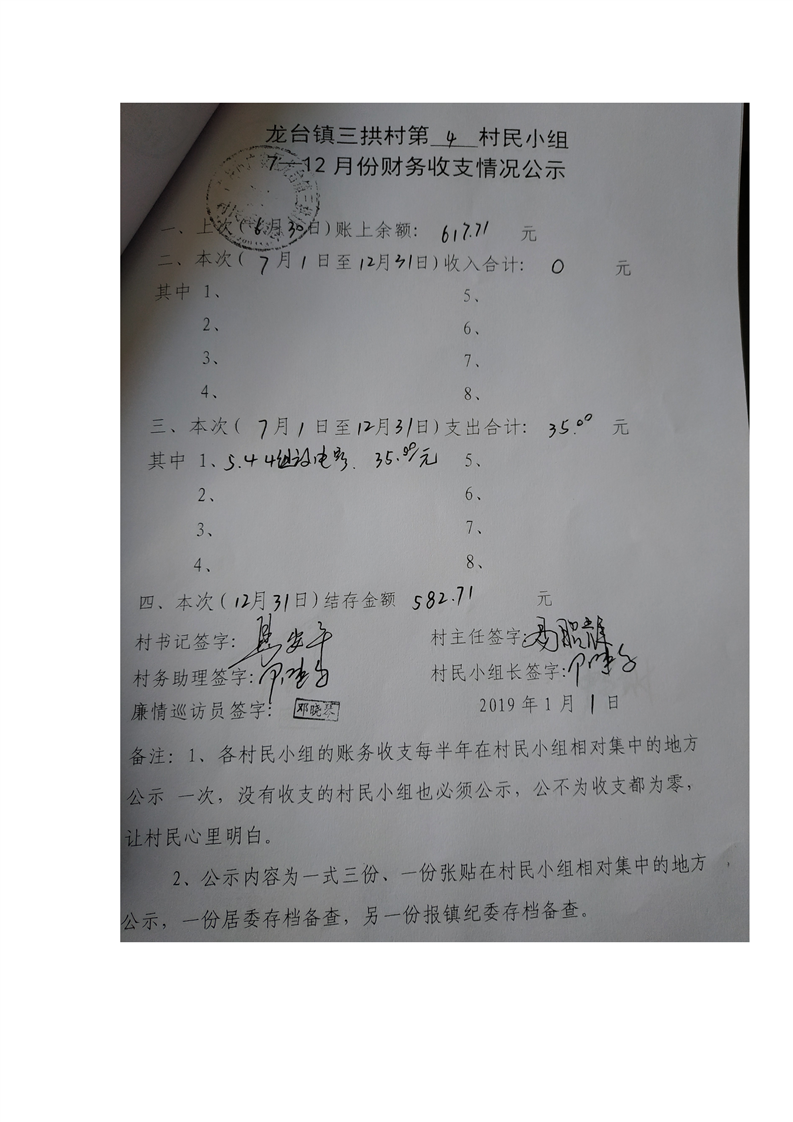 龙台镇三拱村第 4 村民小组
7—12月份财务收支情况公示
一、上次(6月30日)账上余额: 617.71 元
二、本次(7月1日至12月31日)收入合计: 0 元
其中 1、 5、
2、 6、
3、 7、
4、 8、
三、本次(7月1日至12月31日)支出合计: 35.00 元
其中 1、5.4 4组放电影. 35.00元 5、
2、 6、
3、 7、
4、 8、
四、本次(12月31日)结存金额 582.71 元
村书记签字: 村主任签字:
村务助理签字: 村民小组长签字:
廉情巡访员签字: 邓晓琴 2019年1月1日
备注: 1、各村民小组的账务收支每半年在村民小组相对集中的地方
公示 一次,没有收支的村民小组也必须公示,公不为收支都为零,
让村民心里明白。
2、公示内容为一式三份、一份张贴在村民小组相对集中的地方
公示,一份居委存档备查,另一份报镇纪委存档备查。